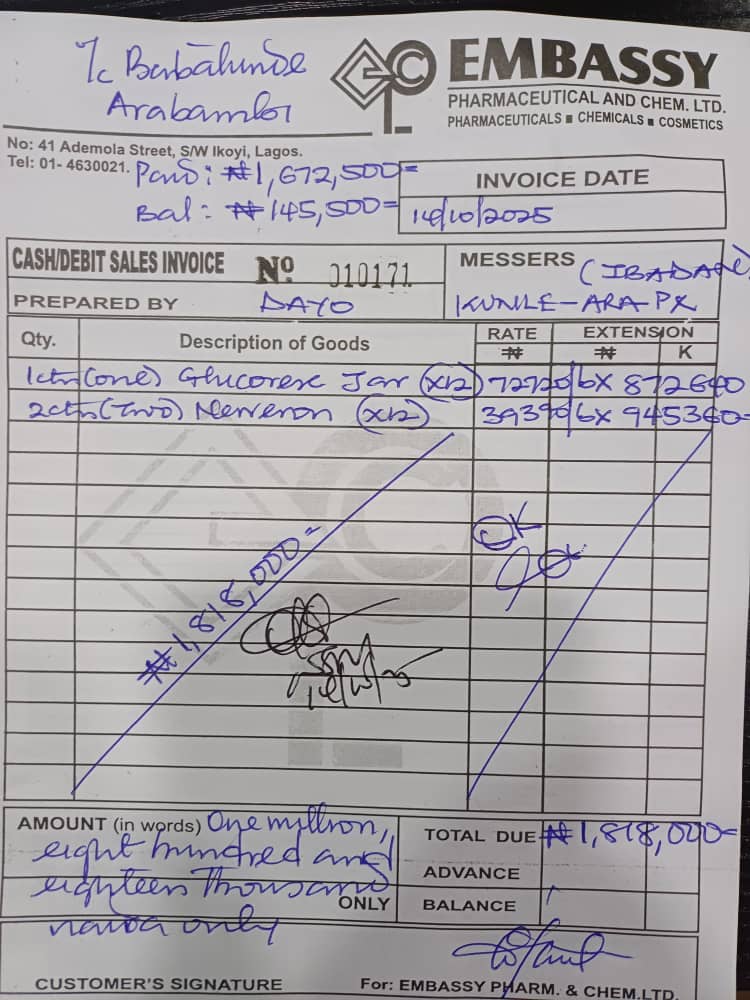 I/c Barbatunde
Arabambi
EMBASSY
PHARMACEUTICAL AND CHEM. LTD.
PHARMACEUTICALS ■ CHEMICALS ■ COSMETICS
No: 41 Ademola Street, S/W Ikoyi, Lagos.
Tel: 01- 4630021.
Paid: ₦1,672,500=
Bal: ₦145,500=
INVOICE DATE
14/10/2025
CASH/DEBIT SALES INVOICE No 010171
MESSERS (IBADAN)
PREPARED BY DAYO
KUNLE-ARA PX
Qty. Description of Goods RATE ₦ EXTENSION ₦ K
1ctn(one) Glucorex Jar (x12) 72720/6x 872640
2ctn(Two) Nerveron (x12) 39390/6x 945360=
OK
₦1,818,000=
14/10/25
AMOUNT (in words) One million,
eight hundred and
eighteen thousand
naira only
ONLY
TOTAL DUE ₦1,818,000=
ADVANCE
BALANCE
CUSTOMER'S SIGNATURE
For: EMBASSY PHARM. & CHEM.LTD.